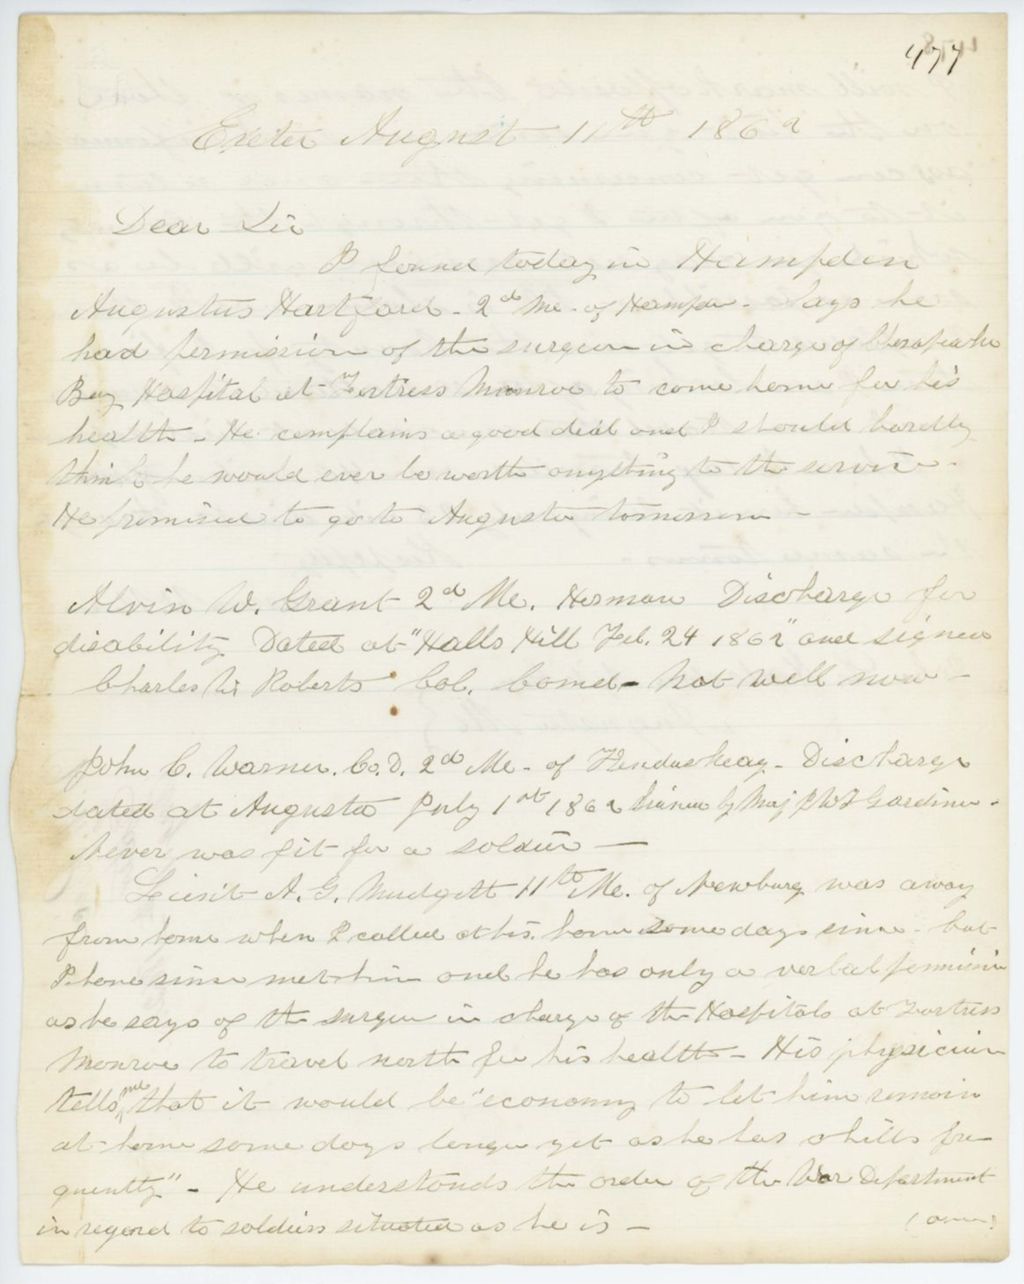 477
Exeter August 11th 1862
Dear Sir
I found today in Hampden
Augustus Hartford - 2d Me. of Hampden - Says he
had permission of the surgeon in charge of Chesapeake
Bay Hospital at Fortress Monroe to come home for his
health - He complains a good deal and I should hardly
think he would ever be worth anything to the service -
He promised to go to Augusta tomorrow -
Alvin W. Grant 2d Me. Hermon Discharge for
disability Dated at "Halls Hill Feb. 24 1862" and signed
Charles W. Roberts Col. Comd - Not well now -
John C. Warner. Co. D. 2d Me - of Kenduskeag - Discharge
dated at Augusta July 1st 1862 by Maj Gardiner -
Never was fit for a soldier -
Lieut A. G. Mudgett 11th Me. of Newburg was away
from home when I called at his home some days since - but
I have since met him and he has only a verbal permission
as he says of the surgeon in charge of the Hospitals at Fortress
Monroe to travel north for his health - His physician
tells me that it would be "economy to let him remain
at home some days longer yet as he has chills fre
quently" - He understands the order of the War Department
in regard to soldiers situated as he is -
(over)